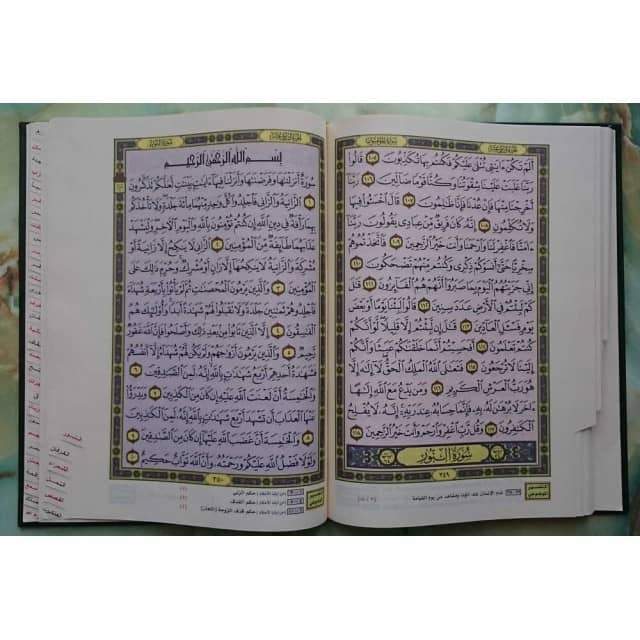 أَلَمْ تَكُنْ ءَايَٰتِى تُتْلَىٰ عَلَيْكُمْ فَكُنتُم بِهَا تُكَذِّبُونَ ١٠٥ قَالُوا۟
رَبَّنَا غَلَبَتْ عَلَيْنَا شِقْوَتُنَا وَكُنَّا قَوْمًا ضَآلِّينَ ١٠٦ رَبَّنَآ
أَخْرِجْنَا مِنْهَا فَإِنْ عُدْنَا فَإِنَّا ظَٰلِمُونَ ١٠٧ قَالَ ٱخْسَـُٔوا۟ فِيهَا
وَلَا تُكَلِّمُونِ ١٠٨ إِنَّهُۥ كَانَ فَرِيقٌ مِّنْ عِبَادِى يَقُولُونَ رَبَّنَآ
ءَامَنَّا فَٱغْفِرْ لَنَا وَٱرْحَمْنَا وَأَنتَ خَيْرُ ٱلرَّٰحِمِينَ ١٠٩ فَٱتَّخَذْتُمُوهُمْ
سِخْرِيًّا حَتَّىٰٓ أَنسَوْكُمْ ذِكْرِى وَكُنتُم مِّنْهُمْ تَضْحَكُونَ ١١٠
إِنِّى جَزَيْتُهُمُ ٱلْيَوْمَ بِمَا صَبَرُوٓا۟ أَنَّهُمْ هُمُ ٱلْفَآئِزُونَ ١١١ قَٰلَ
كَمْ لَبِثْتُمْ فِى ٱلْأَرْضِ عَدَدَ سِنِينَ ١١٢ قَالُوا۟ لَبِثْنَا يَوْمًا أَوْ بَعْضَ
يَوْمٍ فَسْـَٔلِ ٱلْعَآدِّينَ ١١٣ قَٰلَ إِن لَّبِثْتُمْ إِلَّا قَلِيلًا لَّوْ أَنَّكُمْ
كُنتُمْ تَعْلَمُونَ ١١٤ أَفَحَسِبْتُمْ أَنَّمَا خَلَقْنَٰكُمْ عَبَثًا وَأَنَّكُمْ
إِلَيْنَا لَا تُرْجَعُونَ ١١٥ فَتَعَٰلَى ٱللَّهُ ٱلْمَلِكُ ٱلْحَقُّ لَآ إِلَٰهَ إِلَّا
هُوَ رَبُّ ٱلْعَرْشِ ٱلْكَرِيمِ ١١٦ وَمَن يَدْعُ مَعَ ٱللَّهِ إِلَٰهًا
ءَاخَرَ لَا بُرْهَٰنَ لَهُۥ بِهِۦ فَإِنَّمَا حِسَابُهُۥ عِندَ رَبِّهِۦٓ إِنَّهُۥ لَا يُفْلِحُ
ٱلْكَٰفِرُونَ ١١٧ وَقُل رَّبِّ ٱغْفِرْ وَٱرْحَمْ وَأَنتَ خَيْرُ ٱلرَّٰحِمِينَ ١١٨
سُورَةُ النُّورِ
٣٤٩
بِسْمِ ٱللَّهِ ٱلرَّحْمَٰنِ ٱلرَّحِيمِ
سُورَةٌ أَنزَلْنَٰهَا وَفَرَضْنَٰهَا وَأَنزَلْنَا فِيهَآ ءَايَٰتٍۭ بَيِّنَٰتٍ لَّعَلَّكُمْ تَذَكَّرُونَ
١ ٱلزَّانِيَةُ وَٱلزَّانِى فَٱجْلِدُوا۟ كُلَّ وَٰحِدٍ مِّنْهُمَا مِا۟ئَةَ جَلْدَةٍ وَلَا تَأْخُذْكُم
بِهِمَا رَأْفَةٌ فِى دِينِ ٱللَّهِ إِن كُنتُمْ تُؤْمِنُونَ بِٱللَّهِ وَٱلْيَوْمِ ٱلْءَاخِرِ وَلْيَشْهَدْ
عَذَابَهُمَا طَآئِفَةٌ مِّنَ ٱلْمُؤْمِنِينَ ٢ ٱلزَّانِى لَا يَنكِحُ إِلَّا زَانِيَةً أَوْ
مُشْرِكَةً وَٱلزَّانِيَةُ لَا يَنكِحُهَآ إِلَّا زَانٍ أَوْ مُشْرِكٌ وَحُرِّمَ ذَٰلِكَ عَلَى
ٱلْمُؤْمِنِينَ ٣ وَٱلَّذِينَ يَرْمُونَ ٱلْمُحْصَنَٰتِ ثُمَّ لَمْ يَأْتُوا۟ بِأَرْبَعَةِ شُهَدَآءَ
فَٱجْلِدُوهُمْ ثَمَٰنِينَ جَلْدَةً وَلَا تَقْبَلُوا۟ لَهُمْ شَهَٰدَةً أَبَدًا وَأُو۟لَٰٓئِكَ هُمُ
ٱلْفَٰسِقُونَ ٤ إِلَّا ٱلَّذِينَ تَابُوا۟ مِنۢ بَعْدِ ذَٰلِكَ وَأَصْلَحُوا۟ فَإِنَّ ٱللَّهَ غَفُورٌ
رَّحِيمٌ ٥ وَٱلَّذِينَ يَرْمُونَ أَزْوَٰجَهُمْ وَلَمْ يَكُن لَّهُمْ شُهَدَآءُ إِلَّآ أَنفُسُهُمْ
فَشَهَٰدَةُ أَحَدِهِمْ أَرْبَعُ شَهَٰدَٰتٍۭ بِٱللَّهِ إِنَّهُۥ لَمِنَ ٱلصَّٰدِقِينَ ٦
وَٱلْخَٰمِسَةُ أَنَّ لَعْنَتَ ٱللَّهِ عَلَيْهِ إِن كَانَ مِنَ ٱلْكَٰذِبِينَ ٧ وَيَدْرَؤُا۟
عَنْهَا ٱلْعَذَابَ أَن تَشْهَدَ أَرْبَعَ شَهَٰدَٰتٍۭ بِٱللَّهِ إِنَّهُۥ لَمِنَ ٱلْكَٰذِبِينَ
٨ وَٱلْخَٰمِسَةَ أَنَّ غَضَبَ ٱللَّهِ عَلَيْهَآ إِن كَانَ مِنَ ٱلصَّٰدِقِينَ ٩
وَلَوْلَا فَضْلُ ٱللَّهِ عَلَيْكُمْ وَرَحْمَتُهُۥ وَأَنَّ ٱللَّهَ تَوَّابٌ حَكِيمٌ ١٠
٣٥٠
الفرقان
الشعراء
النمل
القصص
العنكبوت